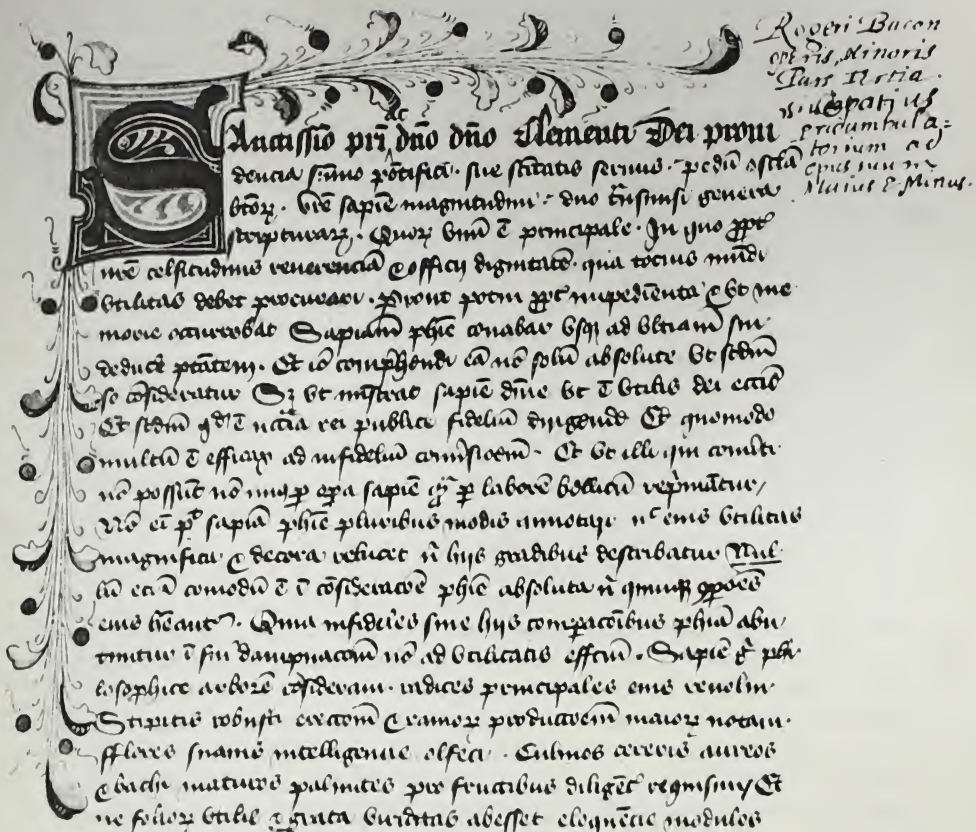 Rogeri Bacon
operis Minoris
Pars Tertia
sive potius
preambula=
torium ad
opus suum
Maius & Minus.
Sanctissio pri ac dno dno Clementi Dei provi
dencia summo pontifici. sue sctitatis servus. pedu oscla
btorz. vre sapie magnitudini. duo transmisi genera
scripturarz. Quorz unu e principale. In quo ppt
vre celsitudinis reverencia & officii dignitate. qua tocius mudi
utilitas debet procurari. prout potui ppt impedienta & ut me
morie occurrebat Sapiam phie conabar usqz ad ultiam sui
deducere ptatem. Et io comphendi ea no solu absolute ut scdm
se consideratur Sz ut ministrat sapie diuine ut e utilis dei eccie
Et scdm qd e necia rei publice fideliu dirigende Et quomodo
multu e efficax ad infideliu conversioem. Et ut illi qui converti
no possunt no minus per opera sapie qm per labore bellicu reprimatur,
No ei pt sapia phie pluribus modis annotari nc eius utilitas
magnifica & decora relucet ni hiis gradibus describatur Nul
lu ecia comodu e i consideracoe phie absoluta ni quiuqz ppoes
eius heant. Quia infideles sine hiis comparacoibus phia abu
tuntur i sui dampnacom no ad utilitatis effcm. Sapie gr phi
losophice arbore consideravi. radices principales eius revolvi
Stipitis robusti erectom & ramorz productoem maiorz notavi.
fflores suavis intelligencie olfeci. Culmos cereris aureos
& bachi maturos palmites pro fructibus diligent requisivi, Et
ne foliorz utilis & grata viriditas abesset eloquencie modules